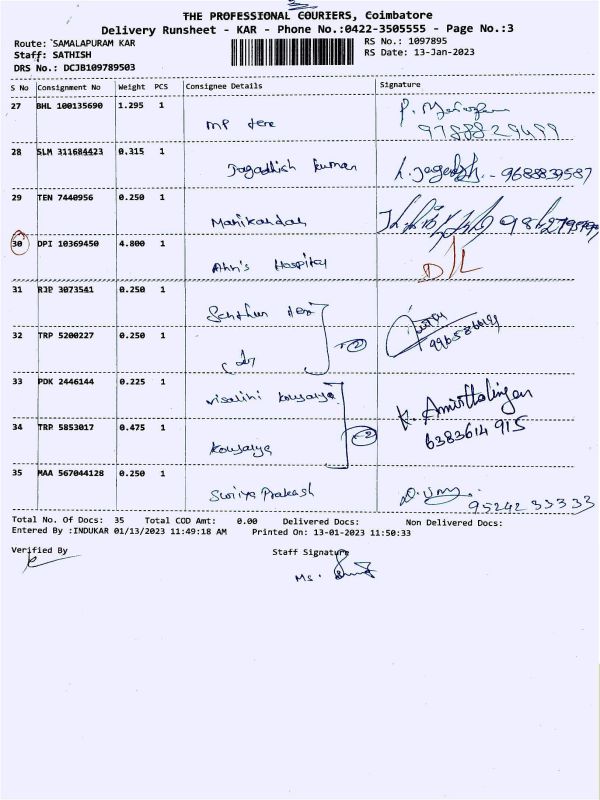 THE PROFESSIONAL COURIERS, Coimbatore
Delivery Runsheet - KAR - Phone No.:0422-3505555 - Page No.:3
Route: SAMALAPURAM KAR
RS No.: 1097895
Staff: SATHISH
RS Date: 13-Jan-2023
DRS No.: DCJB109789503
S No Consignment No Weight PCS Consignee Details Signature
27 BHL 100135690 1.295 1
MP
9788829499
28 SLM 311684423 0.315 1
Jagadhish kumar 9688839587
29 TEN 7440956 0.250 1
Manikandan
30 DPI 10369450 4.800 1
D/L
31 RJP 3073541 0.250 1
32 TRP 5200227 0.250 1
33 PDK 2446144 0.225 1
34 TRP 5853017 0.475 1
6383614915
35 MAA 567044128 0.250 1
Suriya Prakash
95242 33333
Total No. Of Docs: 35 Total COD Amt: 0.00 Delivered Docs: Non Delivered Docs:
Entered By :INDUKAR 01/13/2023 11:49:18 AM Printed On: 13-01-2023 11:50:33
Verified By Staff Signature